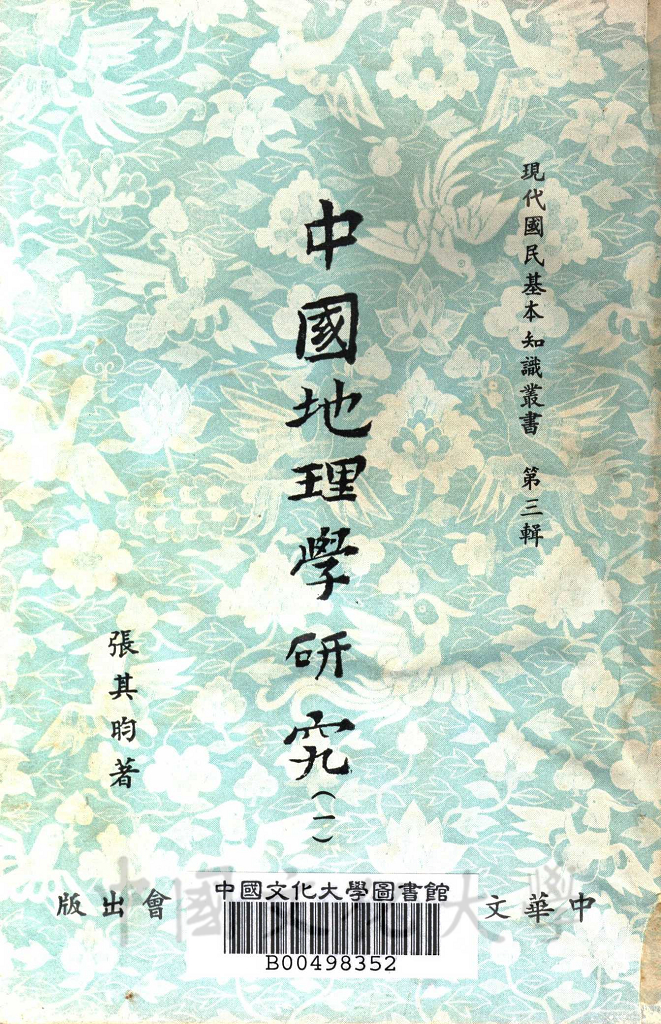 現代國民基本知識叢書 第三輯
中國地理學研究(一)
張其昀著
中華文
會出版
中國文化大學圖書館
B00498352
中國文化大學